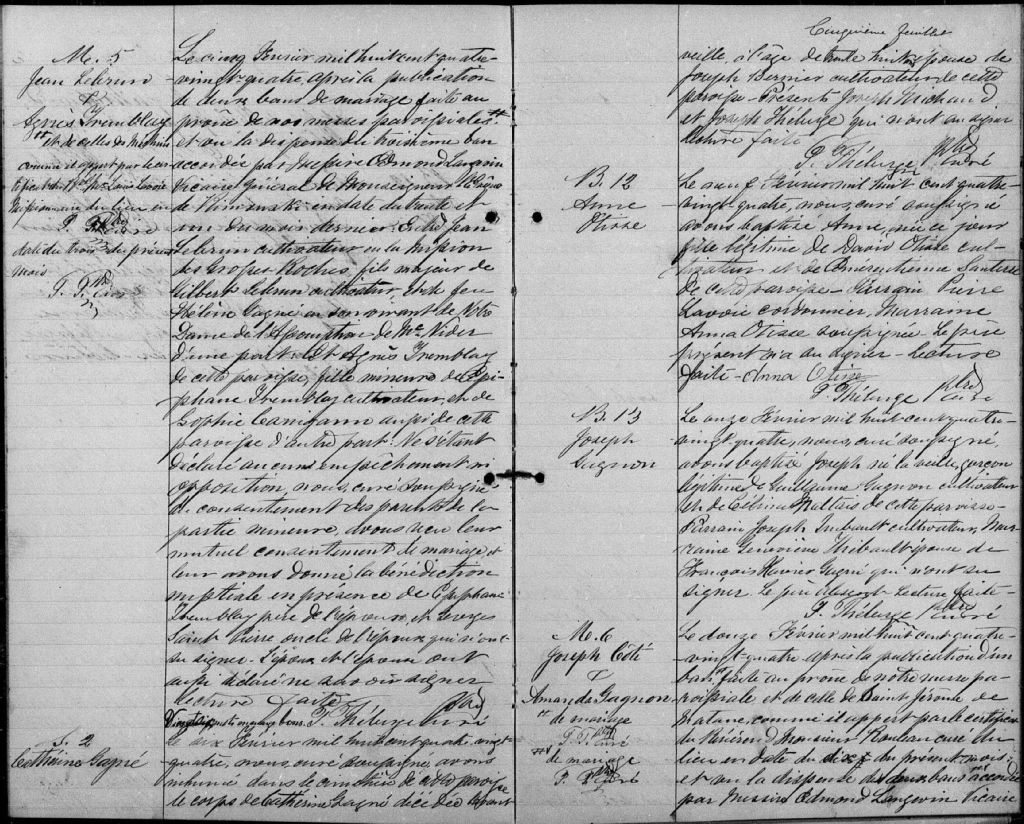 M. 5
Jean Lebrun
&
Agnes Tremblay
et de celles des Méchins
comme il appert par le cer
tificat du Rd Mr Louis Lavoie
Missionnaire du lieu en
P. T. Ptre Curé
date du trois du présent
mois
P. T. Ptre Curé
Le cinq Février mil huit cent quatre-
vingt-quatre, après la publication
de deux bans de mariage faite au
prône de nos messes paroissiales
et vu la dispense du troisième ban
accordée par Messire Edmond Langevin
Vicaire Général de Monseigneur l'Evêque
de Rimouski en date du trente et
un du mois dernier. Entre Jean
Lebrun cultivateur en la mission
des Grosses Roches, fils majeur de
Gilbert Lebrun cultivateur, et de feu
Hélène Gagné en son vivant de Notre
Dame de l'Assomption de McNider
d'une part: Et Agnès Tremblay
de cette paroisse, fille mineure de Epi-
phane Tremblay cultivateur, et de
Sophie Canuann aussi de cette
paroisse d'autre part. Ne s'étant
déclaré aucun empêchement ni
opposition, nous, curé soussigné
du consentement des parents de la
partie mineure, avons reçu leur
mutuel consentement de mariage, et
leur avons donné la bénédiction
nuptiale en présence de Epiphane
Tremblay père de l'épouse, et Georges
Saint Pierre oncle de l'époux qui n'ont
su signer. L'époux et l'épouse ont
aussi déclaré ne savoir signer
lecture faite.
bons. P. Théberge Ptre Curé
S. 2
Catherine Gagné
Le dix Février mil huit cent quatre-vingt-
quatre, nous, curé soussigné, avons
inhumé dans le cimetière de cette paroisse
le corps de Catherine Gagné décédée avant
Cinquième feuillet
veille à l'âge de trente huit ans épouse de
Joseph Bernier cultivateur de cette
paroisse. Présents Joseph Michaud
et Joseph Théberge qui n'ont su signer
lecture faite
P. Théberge Ptre Curé
B. 12
Anne
Otisse
Le neuf Février mil huit cent quatre-
vingt-quatre, nous, curé soussigné
avons baptisé Anne, née ce jour
fille légitime de David Otisse cul-
tivateur et de Emérentienne Santerre
de cette paroisse - Parrain Pierre
Lavoie cordonnier, Marraine
Anna Otisse soussignée. Le père
présent n'a su signer - lecture
faite - Anna Otisse
P. Théberge Ptre Curé
B. 13
Joseph
Gagnon
Le onze Février mil huit cent quatre-
vingt-quatre, nous, curé soussigné,
avons baptisé Joseph né la veille, garçon
légitime de Guillaume Gagnon cultivateur
et de Célina Maltais de cette paroisse -
Parrain Joseph Imbault cultivateur, Mar-
raine Geneviève Thibault épouse de
François Xavier Gagné qui n'ont su
signer. Le père absent - Lecture faite -
P. Théberge Ptre Curé
M. 6
Joseph Côté
&
Amanda Gagnon
de mariage
P. T. Ptre Curé
de mariage
P. T. Ptre Curé
Le douze Février mil huit cent quatre-
vingt-quatre après la publication d'un
ban faite au prône de notre messe pa-
roissiale et de celle de Saint Jérôme de
Matane, comme il appert par le certificat
du Révérend Monsieur Rouleau curé du
lieu en date du dix du présent mois,
et vu la dispense de deux bans accordée
par Messire Edmond Langevin Vicaire